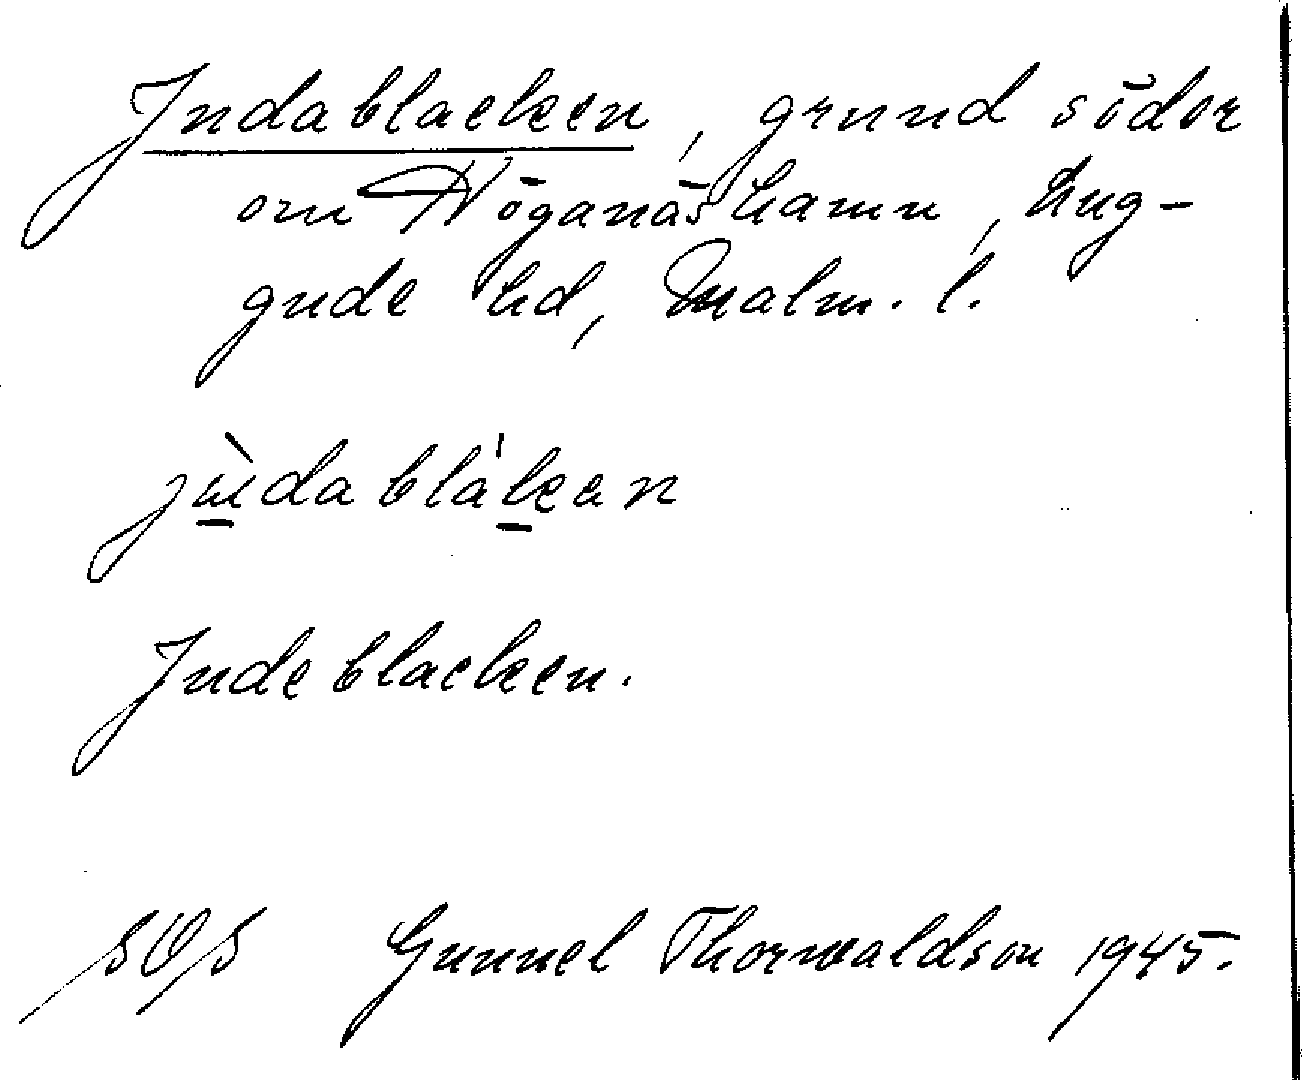 Judablacken, grund söder
om Höganäs hamn, Lug-
gude hd, Malm. l.
Judeblacken.
SOS Gunnel Thorwaldson 1945.